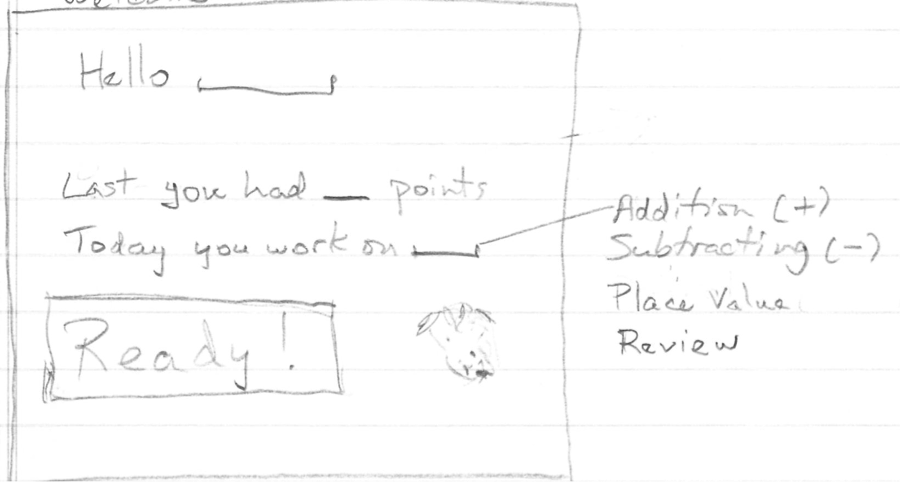 Welcome
Hello
Last you had __ points
Today you work on ____
Ready!
Addition (+)
Subtracting (-)
Place Value
Review